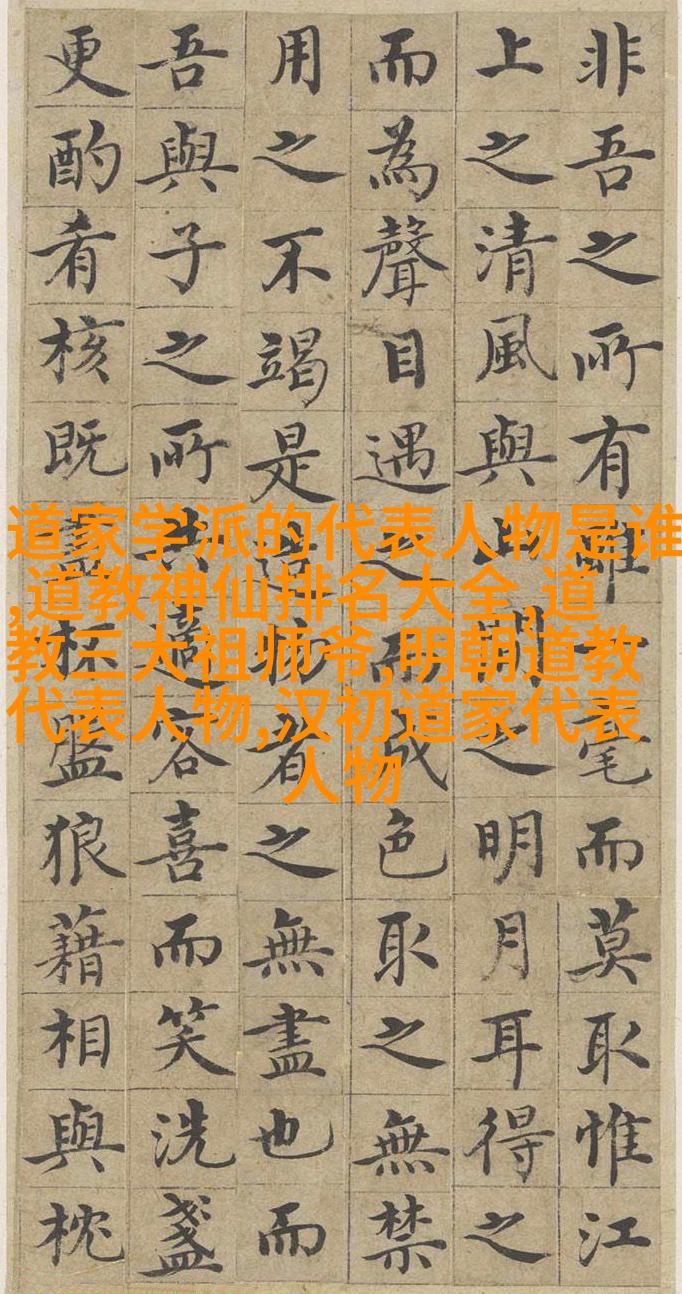 非吾之所有雖毫而莫取惟江
上之清風與山間之明月耳得之
而為聲目遇之而成色取之無禁
用之不竭是造者之無盡也而
吾與子之所共適客喜而笑洗盞
更酌肴核既盡杯盤狼藉相與枕
道家学派的代表人物是谁
,道教神仙排名大全,道
教三大祖师爷,明朝道教
代表人物,汉初道家代表
人物